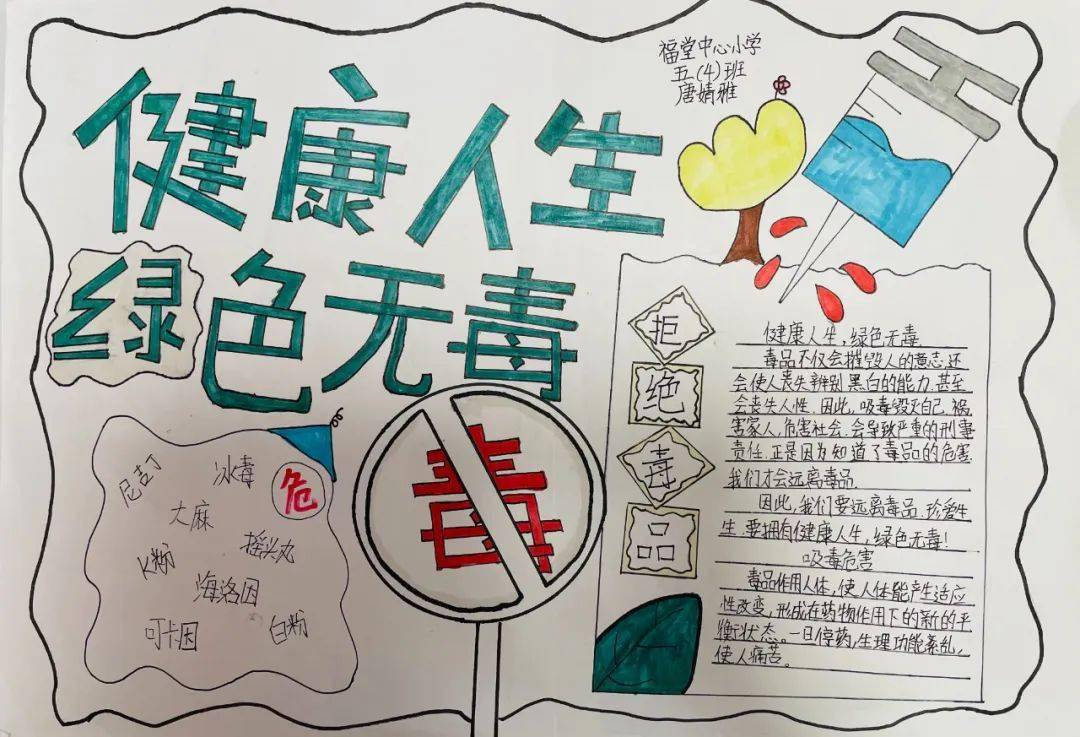 健康人生
绿色无毒
福堂中心小学
五(4)班
唐婧雅
危
尼古丁
冰毒
大麻
K粉
摇头丸
海洛因
可卡因
白粉
毒
拒
绝
毒
品
健康人生,绿色无毒
毒品不仅会摧毁人的意志,还
会使人丧失辨别黑白的能力,甚至
会丧失人性。因此,吸毒毁灭自己,祸
害家人,危害社会,会导致严重的刑事
责任.正是因为知道了毒品的危害
我们才会远离毒品.
因此,我们要远离毒品.珍爱生
生,要拥有健康人生,绿色无毒!
吸毒危害
毒品作用人体,使人体能产生适应
性改变,形成在药物作用下的新的平
衡状态。一旦停药,生理功能紊乱,
使人痛苦。